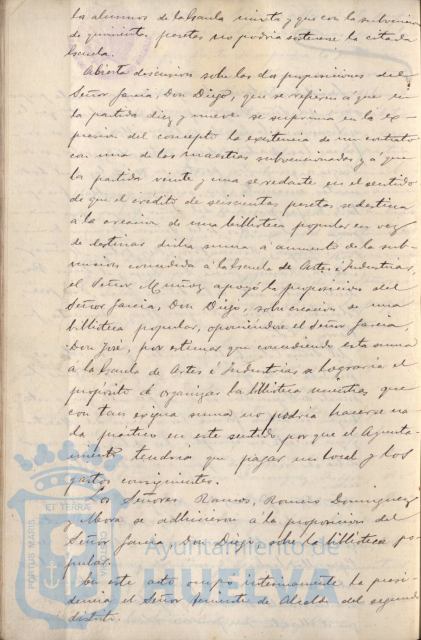 los alumnos de la Escuela mixta y que con la subvencion
de quinientas pesetas no podria sostenerse la citada
Escuela.
Abierta discusion sobre las dos proposiciones del
Señor Garcia, Don Diego, que se refieren á que en
la partida diez y nueve se suprima en la ex-
presion del concepto la existencia de un contrato
con una de las maestras subvencionadas y á que
la partida veinte y una se redacte en el sentido
de que el crédito de seiscientas pesetas se destina
á la creacion de una biblioteca popular en vez
de destinar dicha suma á aumento de la sub-
vencion concedida á la Escuela de Artes é Industrias,
el Señor Muñoz apoyó la proposicion del
Señor Garcia, Don Diego, sobre creacion de una
biblioteca popular, oponiéndose el Señor Garcia,
Don José, por estimar que concediendo esta suma
á la Escuela de Artes é Industrias se lograria el
propósito de organizar la biblioteca mientras que
con tan exigua suma no podria hacerse na-
da práctico en este sentido, por que el Ayunta-
miento tendria que pagar un local y los
gastos consiguientes.
Los Señores Ramos, Romero Dominguez
y Mora se adhirieron á la proposicion del
Señor Garcia, Don Diego, sobre la biblioteca po-
pular.
En este acto ocupó interinamente la presi-
dencia el Señor Teniente de Alcalde del segundo
distrito.
PORTUS MARIS
ET TERRÆ
Ayuntamiento de
HUELVA